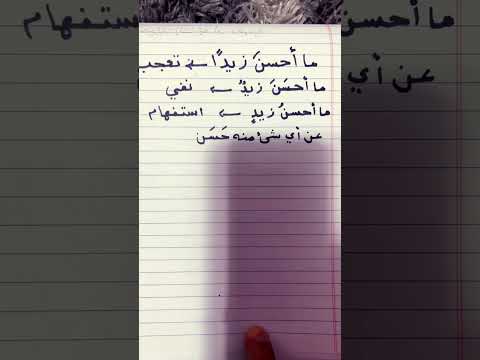 ما أحسنَ زيدًا ← تعجب
ما أحسَنَ زيدٌ ← نفي
ما أحسنُ زيدٍ ← استفهام
عن أي شئ منه حَسَن